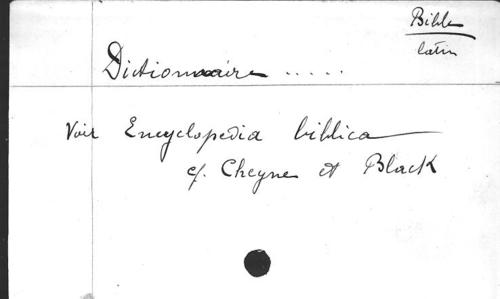 Bible
latin
Dictionnaire .....
Voir Encyclopedia biblica
cf. Cheyne et Black